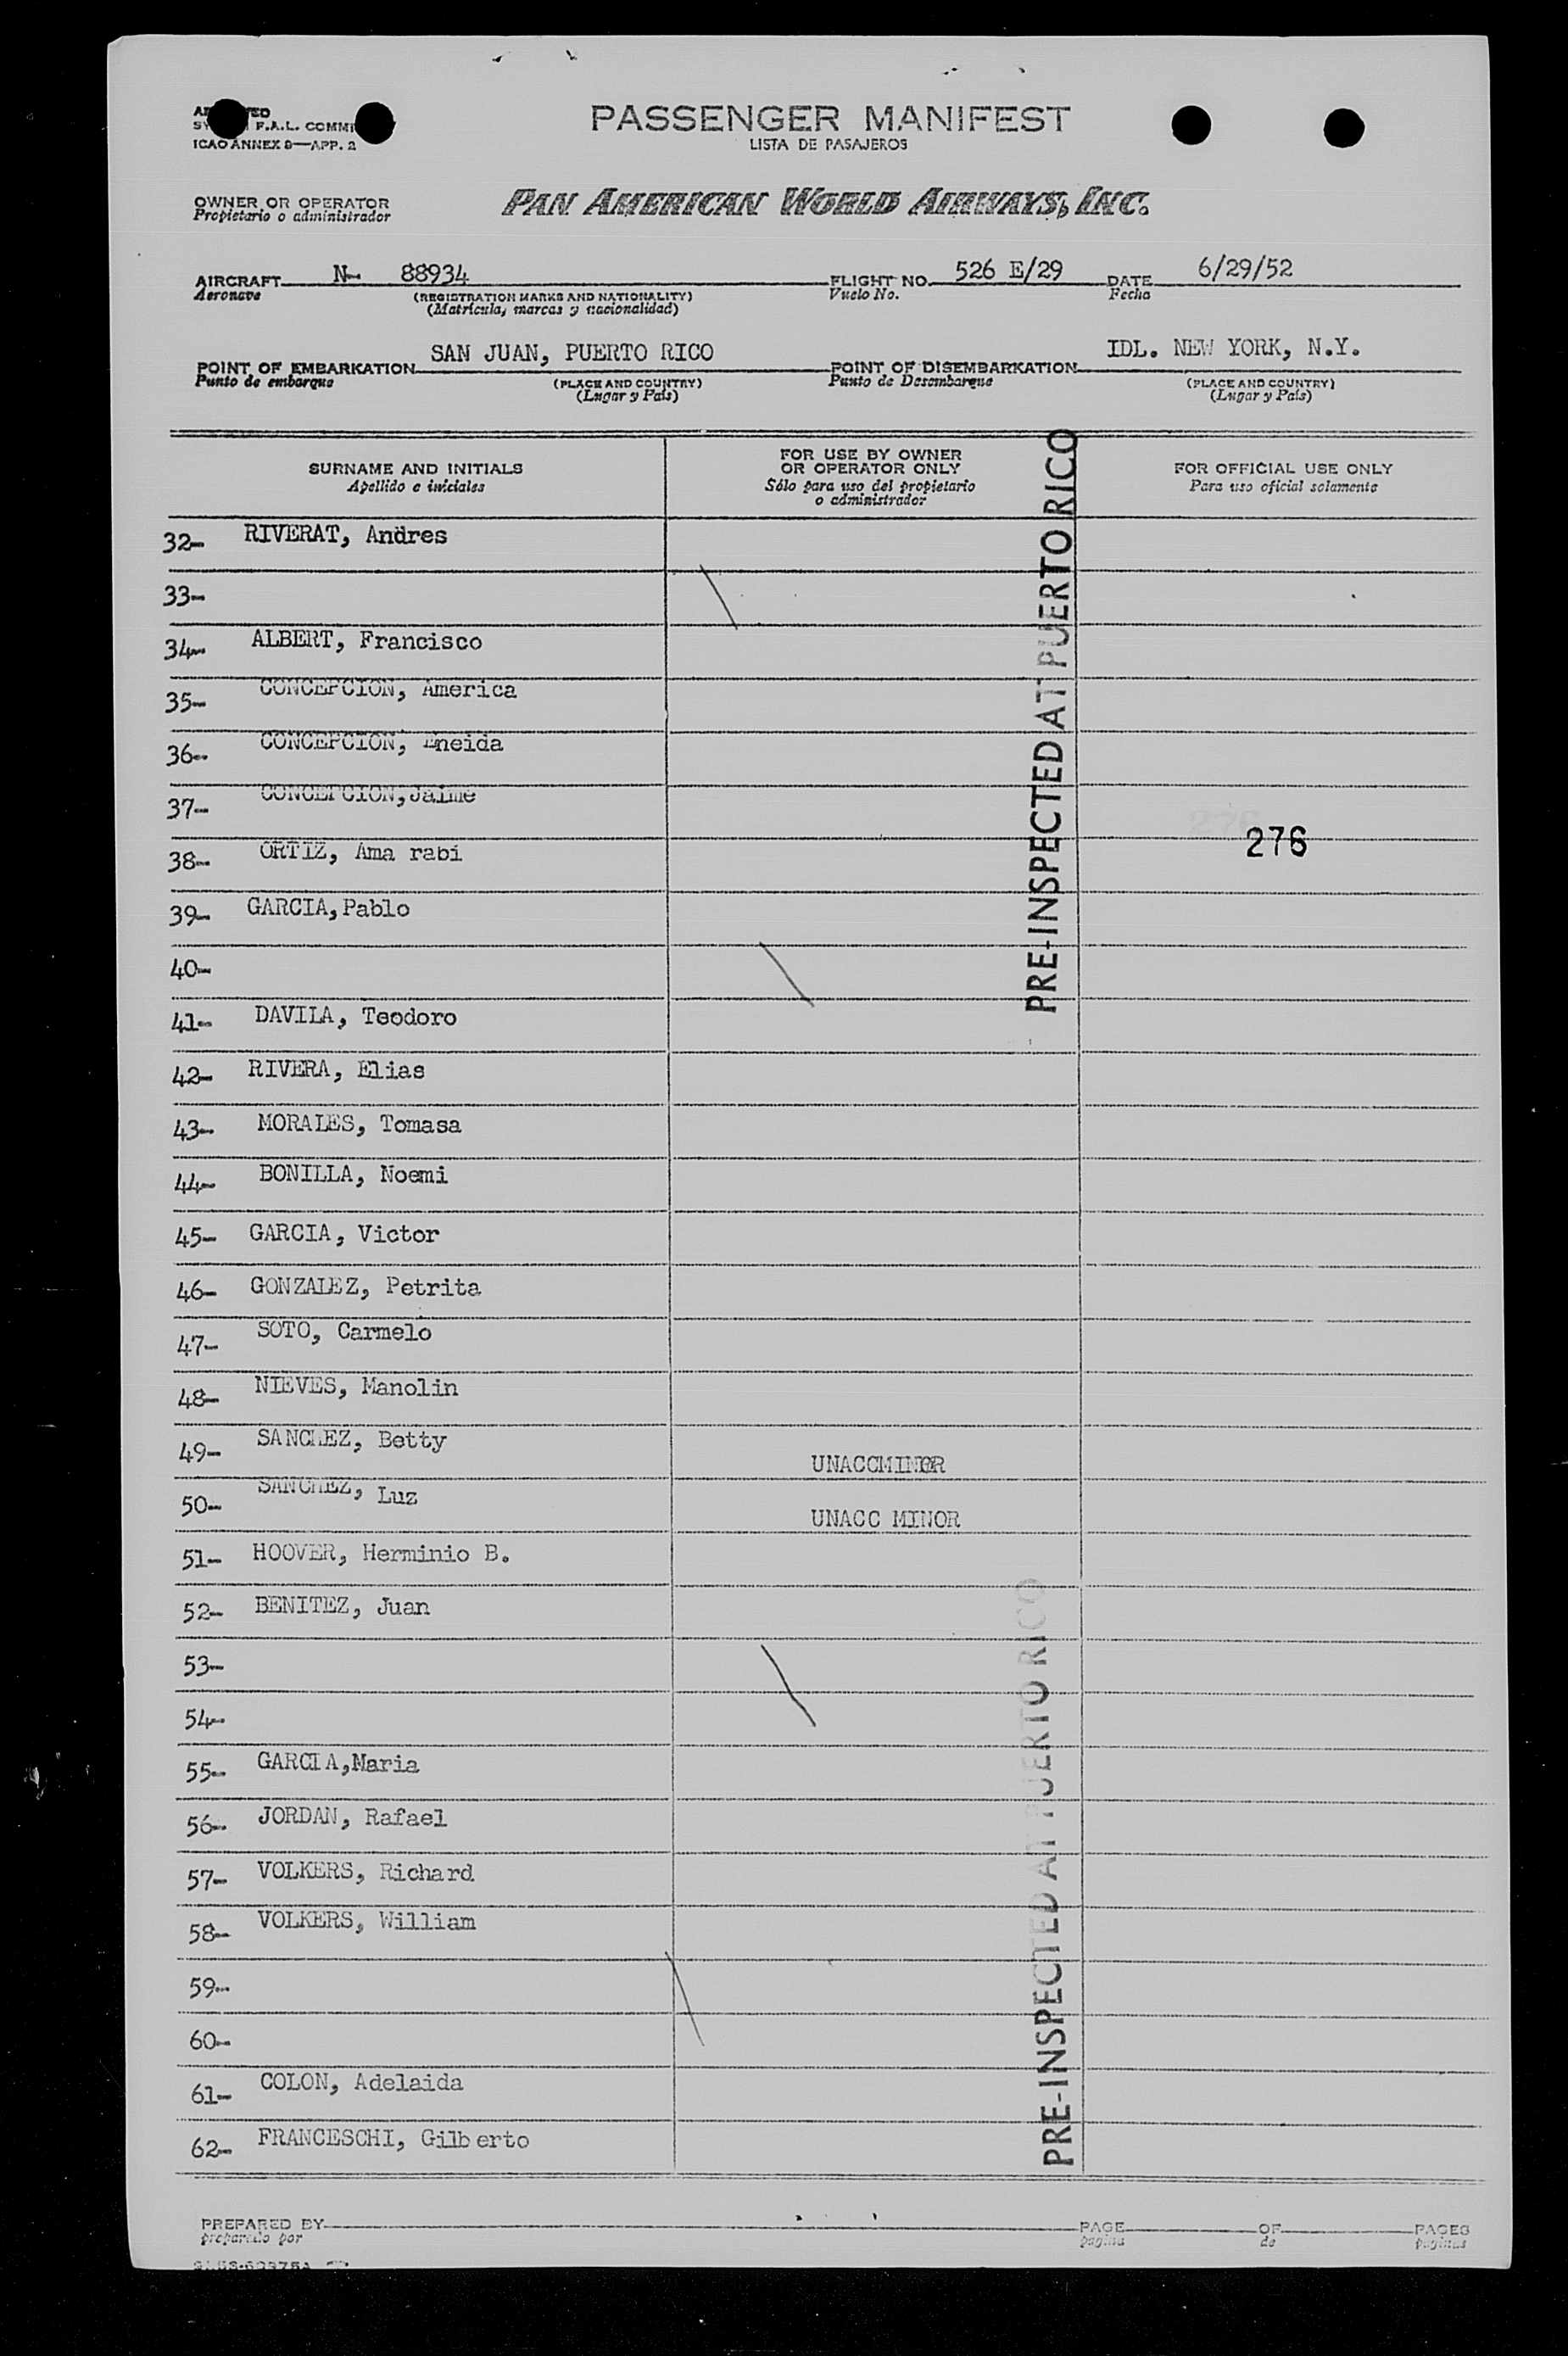 PASSENGER MANIFEST
LISTA DE PASAJEROS
F.A.L. COMMI
ICAO ANNEX 9—APP. 2
OWNER OR OPERATOR
Propietario o administrador
PAN AMERICAN WORLD AIRWAYS, INC.
AIRCRAFT N- 88934 FLIGHT NO. 526 E/29 DATE 6/29/52
Aeronave (REGISTRATION MARKS AND NATIONALITY) Vuelo No. Fecha
(Matrícula, marcas y nacionalidad)
POINT OF EMBARKATION SAN JUAN, PUERTO RICO POINT OF DISEMBARKATION IDL. NEW YORK, N.Y.
Punto de embarque (PLACE AND COUNTRY) Punto de Desembarque (PLACE AND COUNTRY)
(Lugar y País) (Lugar y País)
SURNAME AND INITIALS
Apellido e iniciales
FOR USE BY OWNER
OR OPERATOR ONLY
Sólo para uso del propietario
o administrador
FOR OFFICIAL USE ONLY
Para uso oficial solamente
32- RIVERAT, Andres
33-
34- ALBERT, Francisco
35- CONCEPCION, America
36- CONCEPCION, Eneida
37- CONCEPCION,Jaime
38- ORTIZ, Ama rabi
276
39- GARCIA,Pablo
40-
41- DAVILA, Teodoro
42- RIVERA, Elias
43- MORALES, Tomasa
44- BONILLA, Noemi
45- GARCIA, Victor
46- GONZALEZ, Petrita
47- SOTO, Carmelo
48- NIEVES, Manolin
49- SANCHEZ, Betty UNACCMINOR
50- SANCHEZ, Luz UNACC MINOR
51- HOOVER, Herminio B.
52- BENITEZ, Juan
53-
54-
55- GARCIA,Maria
56- JORDAN, Rafael
57- VOLKERS, Richard
58- VOLKERS, William
59-
60-
61- COLON, Adelaida
62- FRANCESCHI, Gilberto
PRE-INSPECTED AT PUERTO RICO
PRE-INSPECTED AT PUERTO RICO
PREPARED BY PAGE OF PAGES
preparado por página de páginas